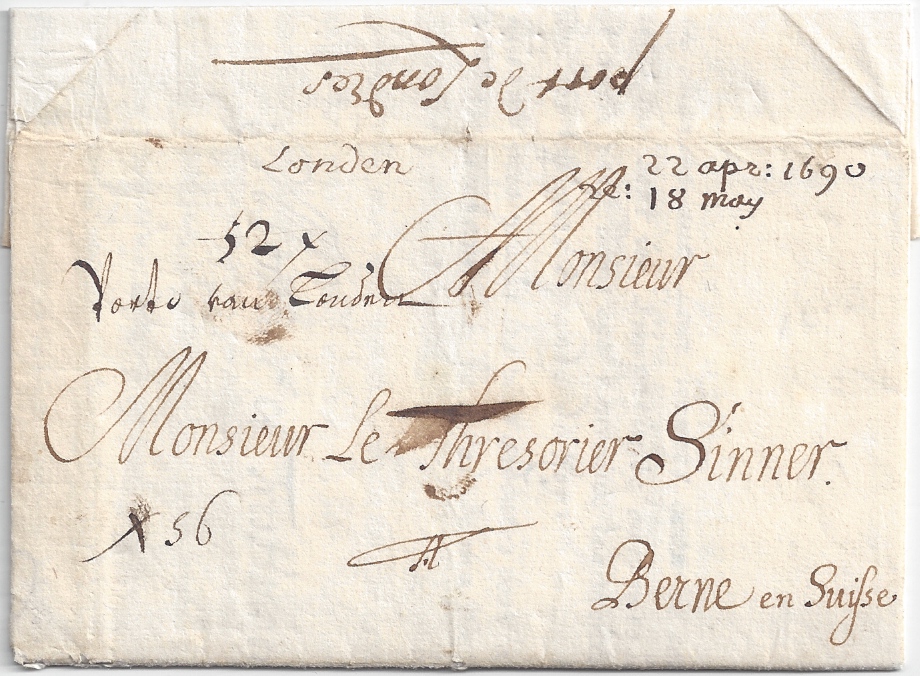 port de Londres
Londen
22 apr: 1690
Re: 18 may
52 x
Monsieur
Porto van Londen
Monsieur Le Thresorier Sinner.
x 56
Berne en Suisse